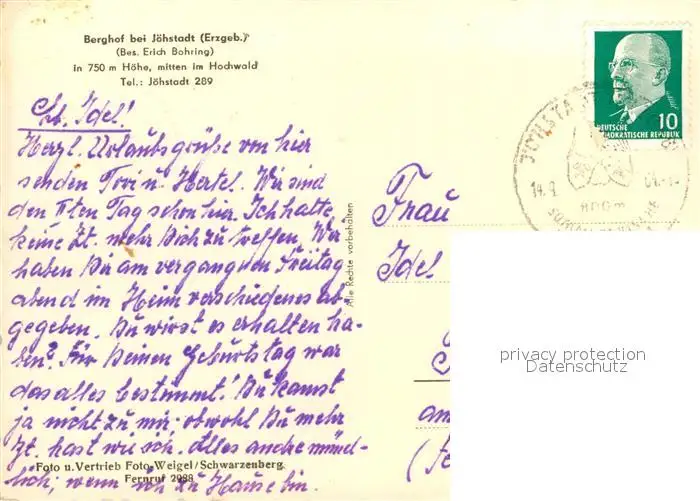 Berghof bei Jöhstadt (Erzgeb.)
(Bes. Erich Bohring)
in 750 m Höhe, mitten im Hochwald
Tel.: Jöhstadt 289
Lb. Idel!
Herzl. Urlaubsgrüße von hier
senden Tori u. Hertel. Wir sind
den IIten Tag schon hier. Ich hatte
keine Zt. mehr Dich zu treffen. Wir
haben Dir am vergangenen Freitag
abend im Heim verschiedenes ab
gegeben. Du wirst es erhalten ha-
ben? Für Deinen Geburtstag war
das alles bestimmt! Du kamst
ja nicht zu mir, obwohl Du mehr
Zt. hast wie ich. Alles andre münd-
lich, wenn ich zu Hause bin.
Foto u. Vertrieb Foto-Weigel/Schwarzenberg
Fernruf 2988
Alle Rechte vorbehalten
10
DEUTSCHE
DEMOKRATISCHE REPUBLIK
JÖHSTADT
14.9.
Frau
Idel
an
privacy protection
Datenschutz